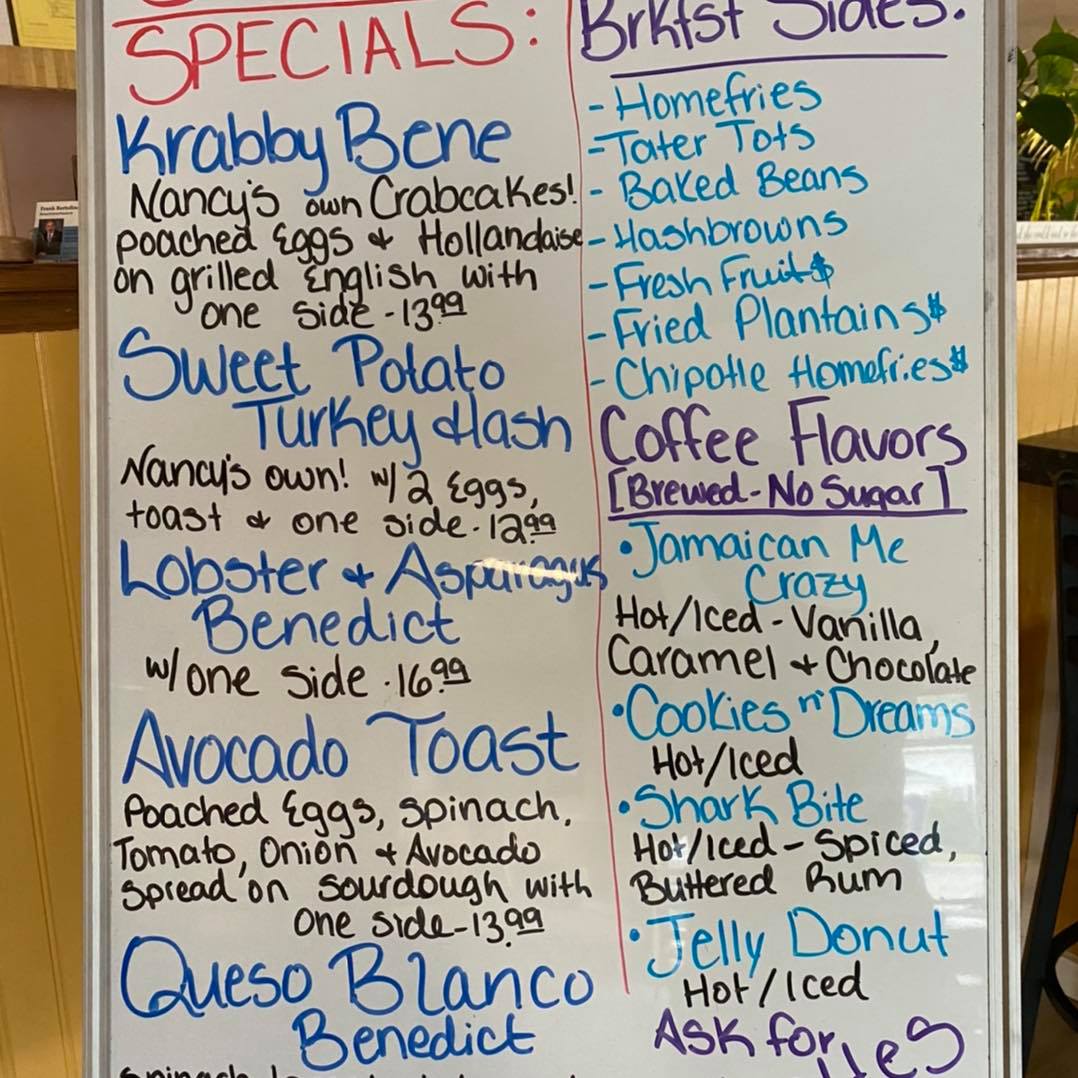 SPECIALS:
Krabby Bene
Nancy's own Crabcakes!
poached Eggs & Hollandaise
on grilled English with
one side - 13.99
Sweet Potato
Turkey Hash
Nancy's own! w/ 2 Eggs,
toast & one side - 12.99
Lobster & Asparagus
Benedict
w/ one side - 16.99
Avocado Toast
Poached Eggs, spinach,
Tomato, Onion & Avocado
spread on sourdough with
one side - 13.99
Queso Blanco
Benedict
Brkfst Sides:
- Homefries
- Tater Tots
- Baked Beans
- Hashbrowns
- Fresh Fruit $
- Fried Plantains $
- Chipotle Homefries $
Coffee Flavors
[Brewed - No Sugar]
• Jamaican Me
Crazy
Hot/Iced - Vanilla,
Caramel & Chocolate
• Cookies n' Dreams
Hot/Iced
• Shark Bite
Hot/Iced - Spiced,
Buttered Rum
• Jelly Donut
Hot/Iced
Ask for